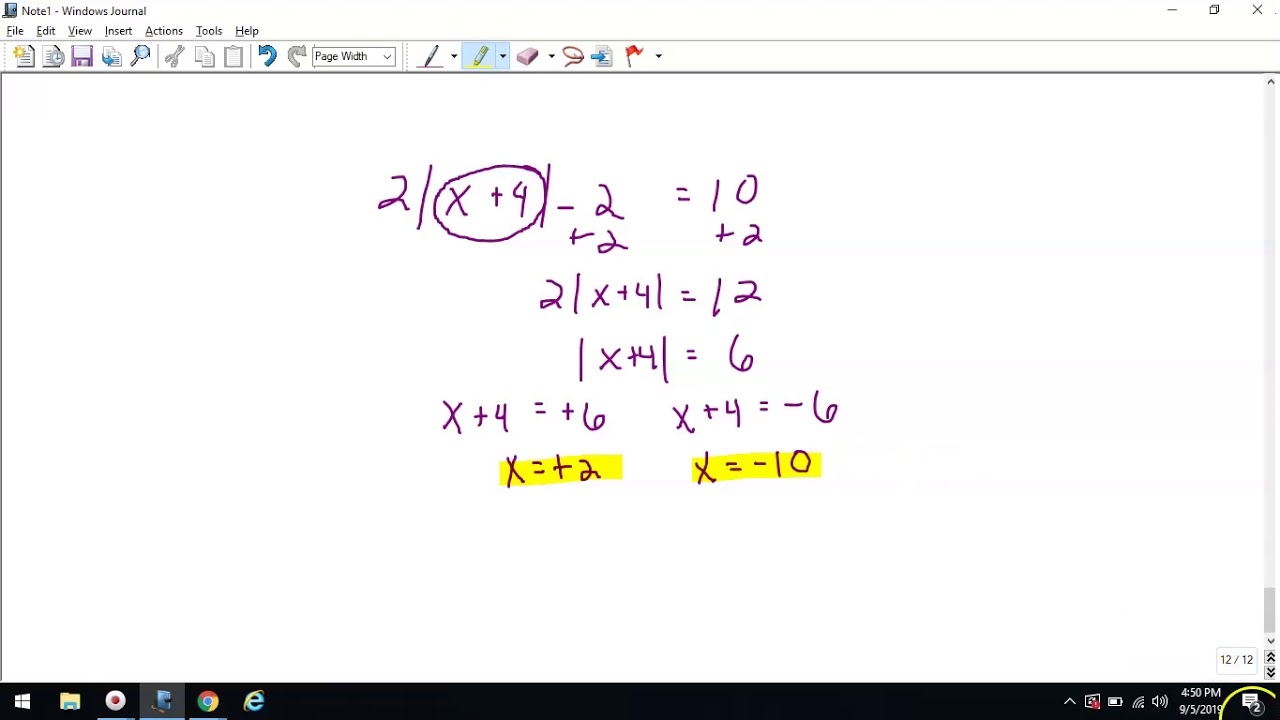 Note1 - Windows Journal
File Edit View Insert Actions Tools Help
Page Width
2|x+4| - 2 = 10
+2 +2
2|x+4| = 12
|x+4| = 6
x+4 = +6 x+4 = -6
x=+2 x=-10
12 / 12
4:50 PM
9/5/2019
2